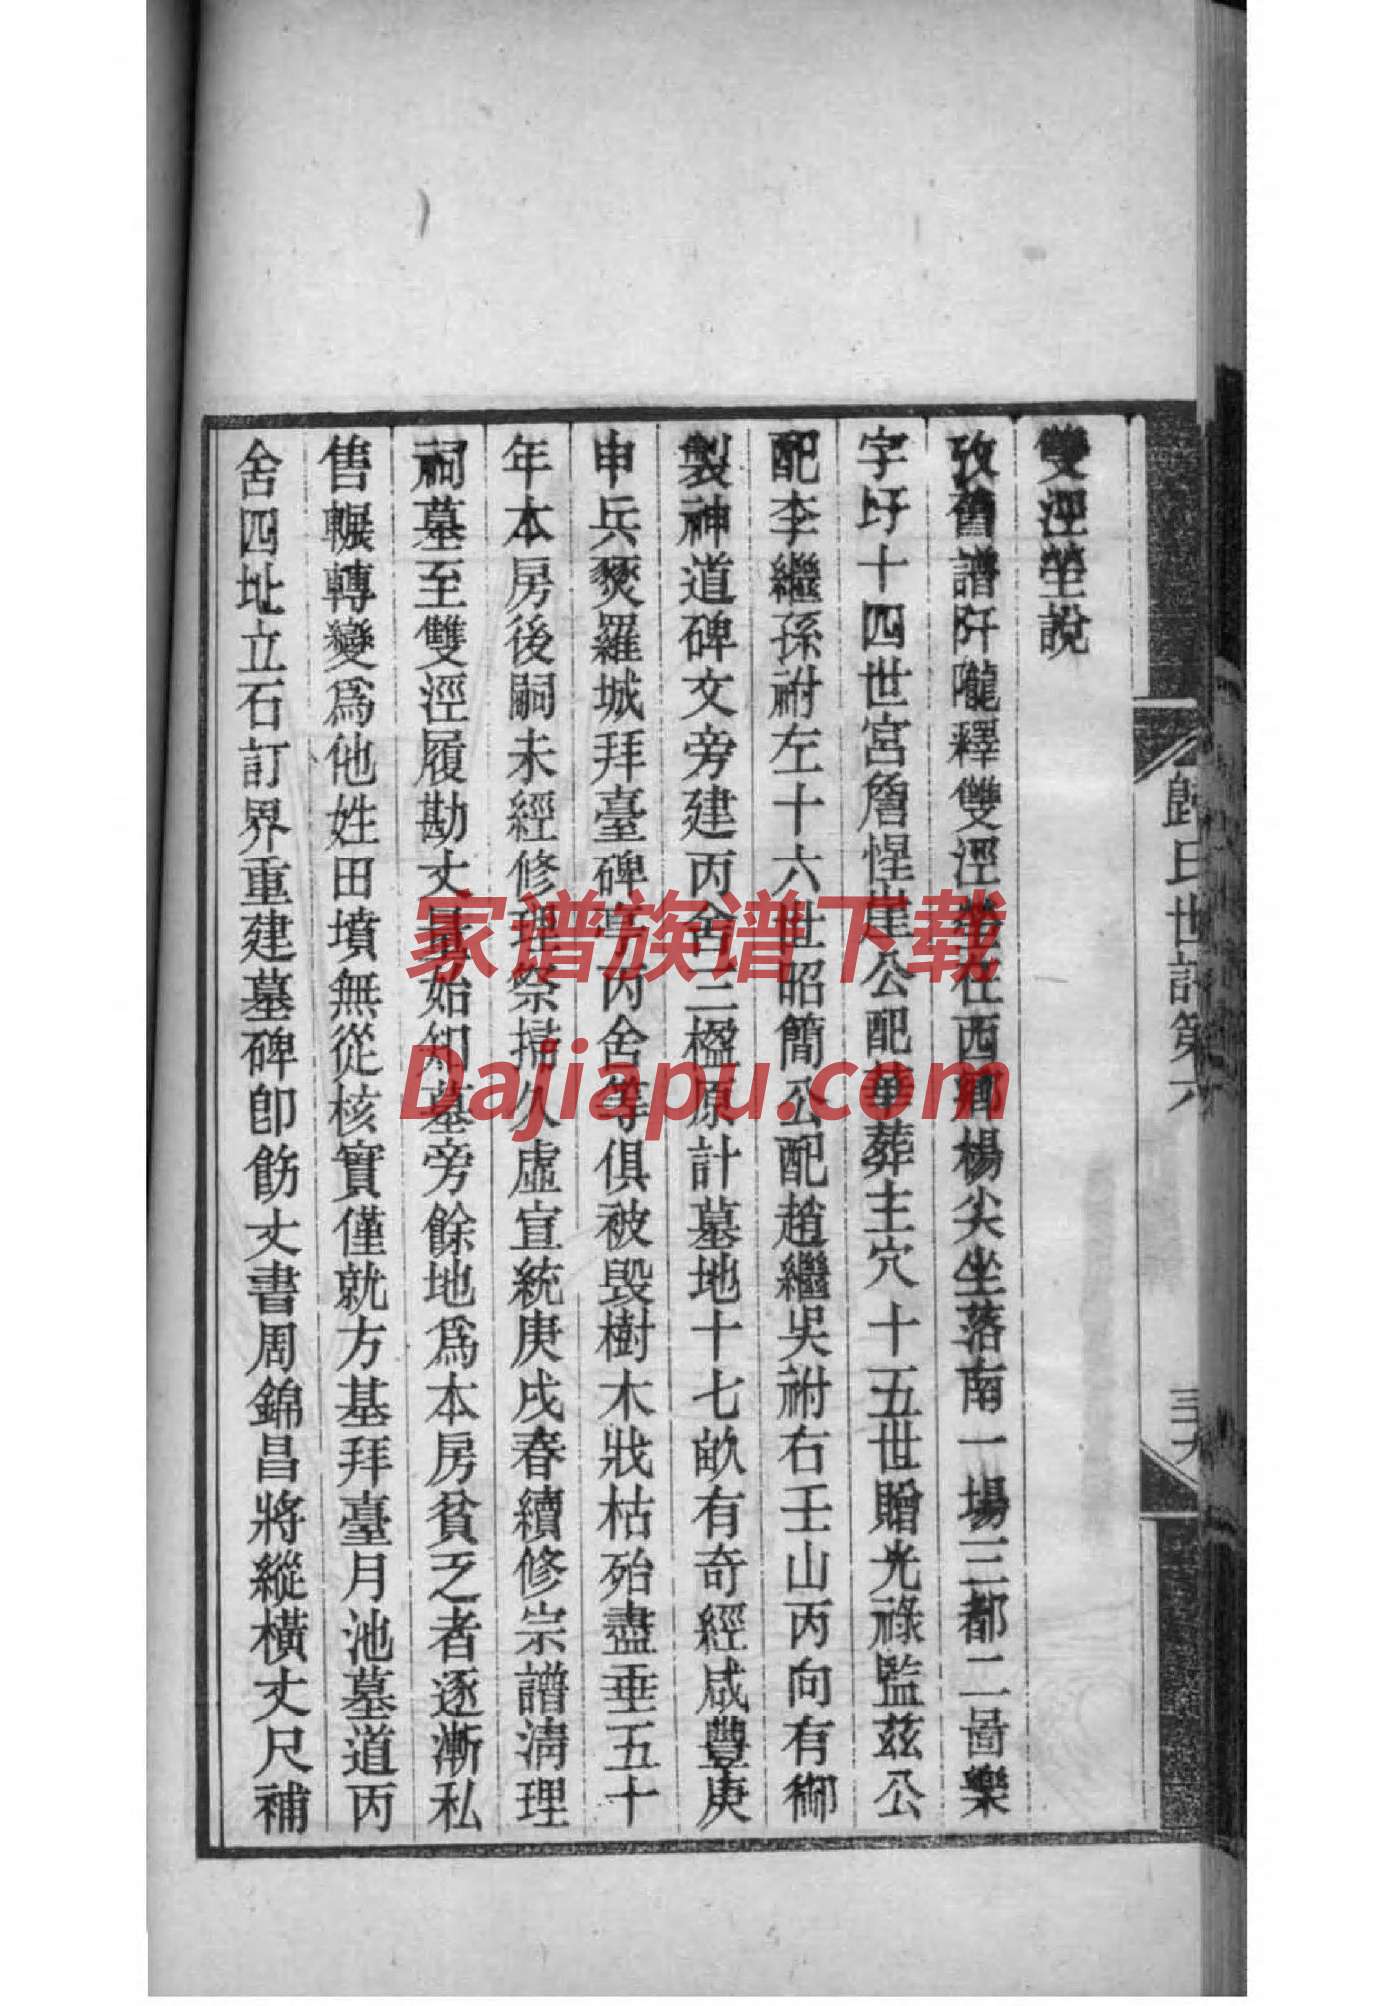 雙涇塋說
攷舊譜阡隴釋雙涇塋在西鄉楊尖坐落南一場三都二啚樂
字圩十四世宮詹惺崖公配華葬主穴十五世贈光祿監茲公
配李繼孫祔左十六世昭簡公配趙繼吳祔右壬山丙向有御
製神道碑文旁建丙舍三楹原計墓地十七畝有奇經咸豐庚
申兵燹羅城拜臺碑亭丙舍等俱被毀樹木戕枯殆盡垂五十
年本房後嗣未經修理祭掃久虛宣統庚戌春續修宗譜淸理
祠墓至雙涇履勘丈量始知墓旁餘地爲本房貧乏者逐漸私
售輾轉變爲他姓田墳無從核實僅就方基拜臺月池墓道丙
舍四址立石訂界重建墓碑卽飭丈書周錦昌將縱橫丈尺補
歸氏世譜第六
家谱族谱下载
Dajiapu.com